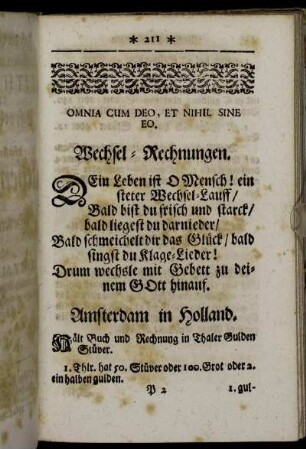 * 211 *
OMNIA CUM DEO, ET NIHIL SINE
EO.
Wechsel-Rechnungen.
DEin Leben ist O Mensch! ein
steter Wechsel-Lauff/
Bald bist du frisch und starck/
bald liegest du darnieder/
Bald schmeichelt dir das Glück/ bald
singst du Klage-Lieder!
Drum wechsle mit Gebett zu dei-
nem GOtt hinauf.
Amsterdam in Holland.
Hält Buch und Rechnung in Thaler Gulden
Stüver.
1. Thlr. hat 50. Stüver oder 100. Grot oder 2.
ein halben gulden.
P 2 1. gul-